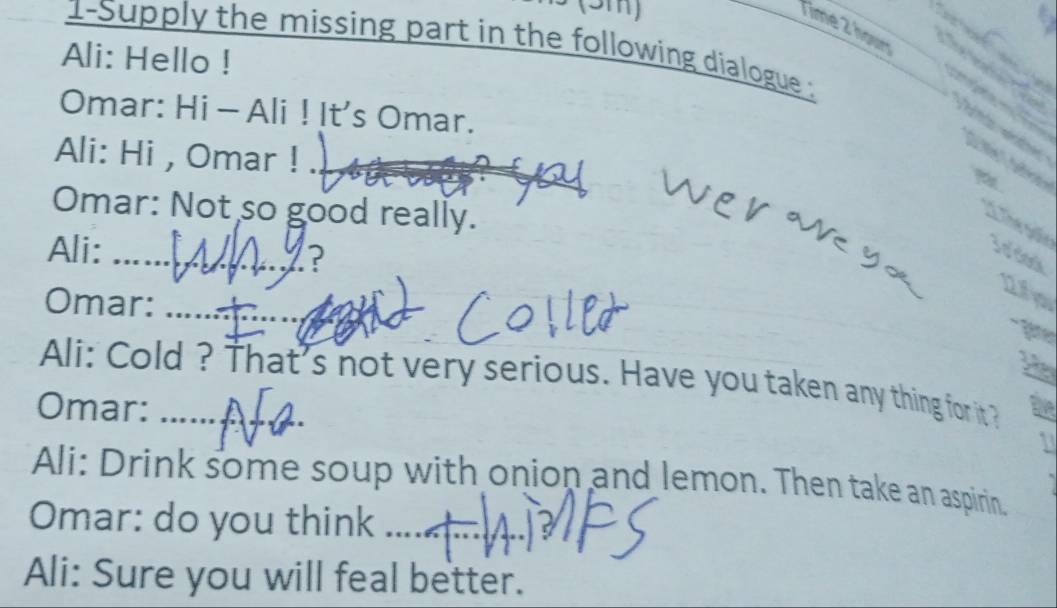 (5m)
Time 2 hours
1-Supply the missing part in the following dialogue :
Ali: Hello !
Omar: Hi – Ali ! It's Omar.
Ali: Hi , Omar ! you wer are you
Omar: Not so good really.
Ali: ...... Why ....?
Omar: ...... I Colled
Ali: Cold ? That's not very serious. Have you taken any thing for it ?
Omar: ...... No
Ali: Drink some soup with onion and lemon. Then take an aspirin.
Omar: do you think ...... thinks ?
Ali: Sure you will feal better.